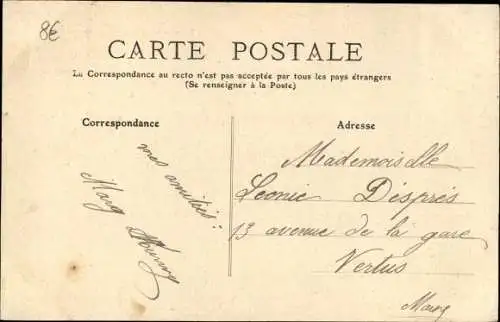 8€
CARTE POSTALE
La Correspondance au recto n'est pas acceptée par tous les pays étrangers
(Se renseigner à la Poste)
Correspondance
mes amitiés
Marg
Adresse
Mademoiselle
Léonie Després
13 avenue de la gare
Vertus